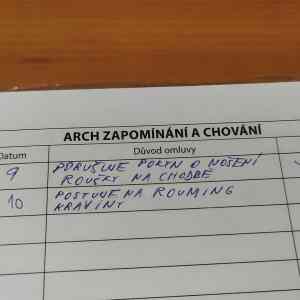 ARCH ZAPOMÍNÁNÍ A CHOVÁNÍ
Datum Důvod omluvy
9 PORUŠUJE POKYN O NOŠENÍ
ROUŠKY NA CHODBĚ
10 POSTUJE NA ROUMING
KRAVINY